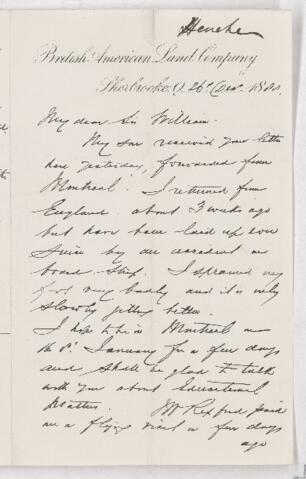 Heneker
British American Land Company
Sherbrooke, Q. 26 Dec. 1890.
My dear Sir William.
My son received your letter
here yesterday, forwarded from
Montreal. I returned from
England about 3 weeks ago
but have been laid up ever
since by an accident on
board ship. I sprained my
foot very badly and it is only
slowly getting better.
I hope to be in Montreal on
the January for a few days
and shall be glad to talk
with you about Educational
matters. Mr Rexford paid
me a flying visit a few days
ago